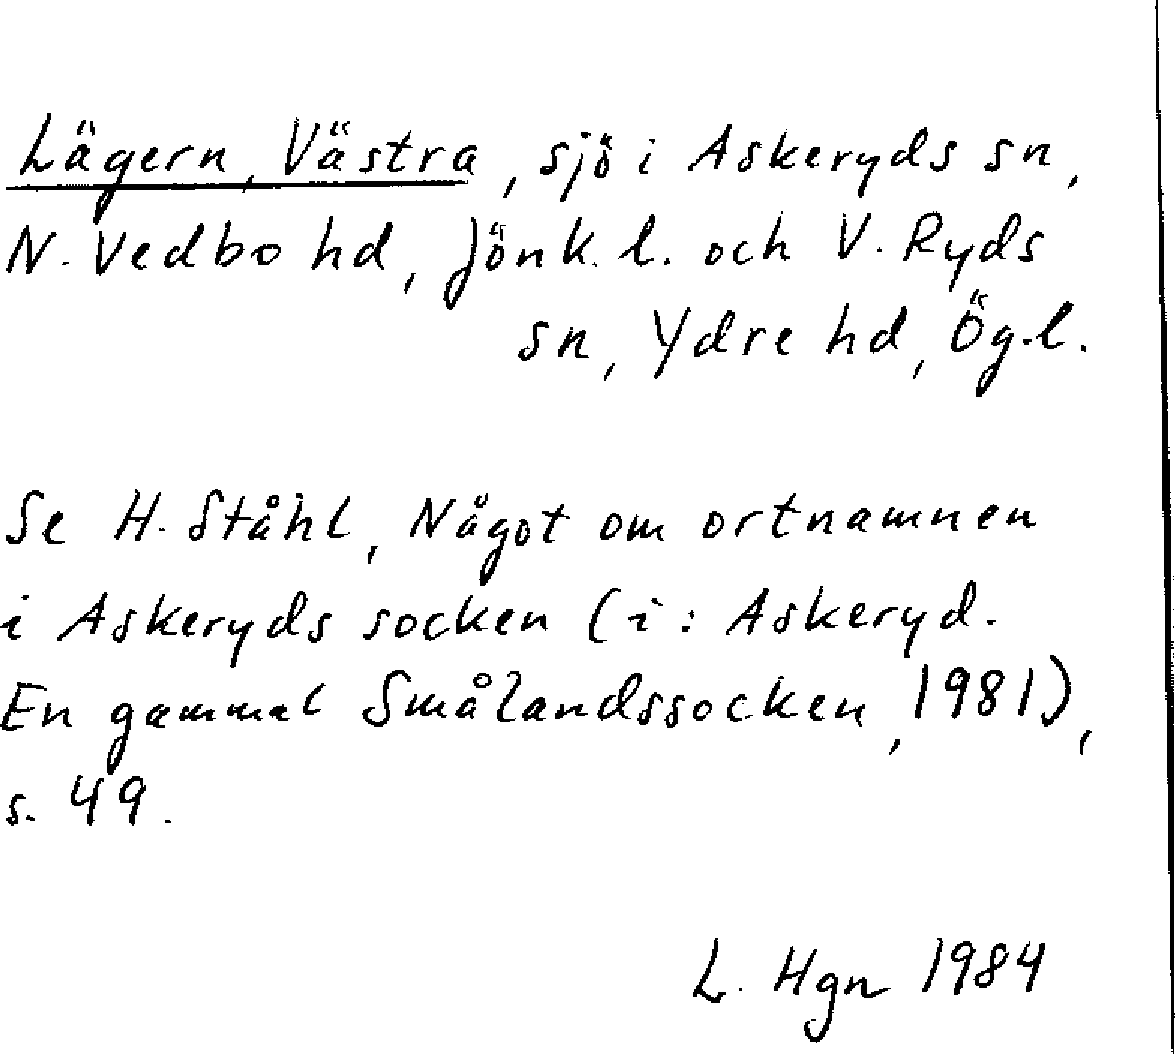 Lägern, Västra, sjö i Askeryds sn,
N. Vedbo hd, Jönk. l. och V. Ryds
sn, Ydre hd, Ög.l.
Se H. Ståhl, Något om ortnamnen
i Askeryds socken (i: Askeryd.
En gammal Smålandssocken, 1981),
s. 49.
L. Hgn 1984